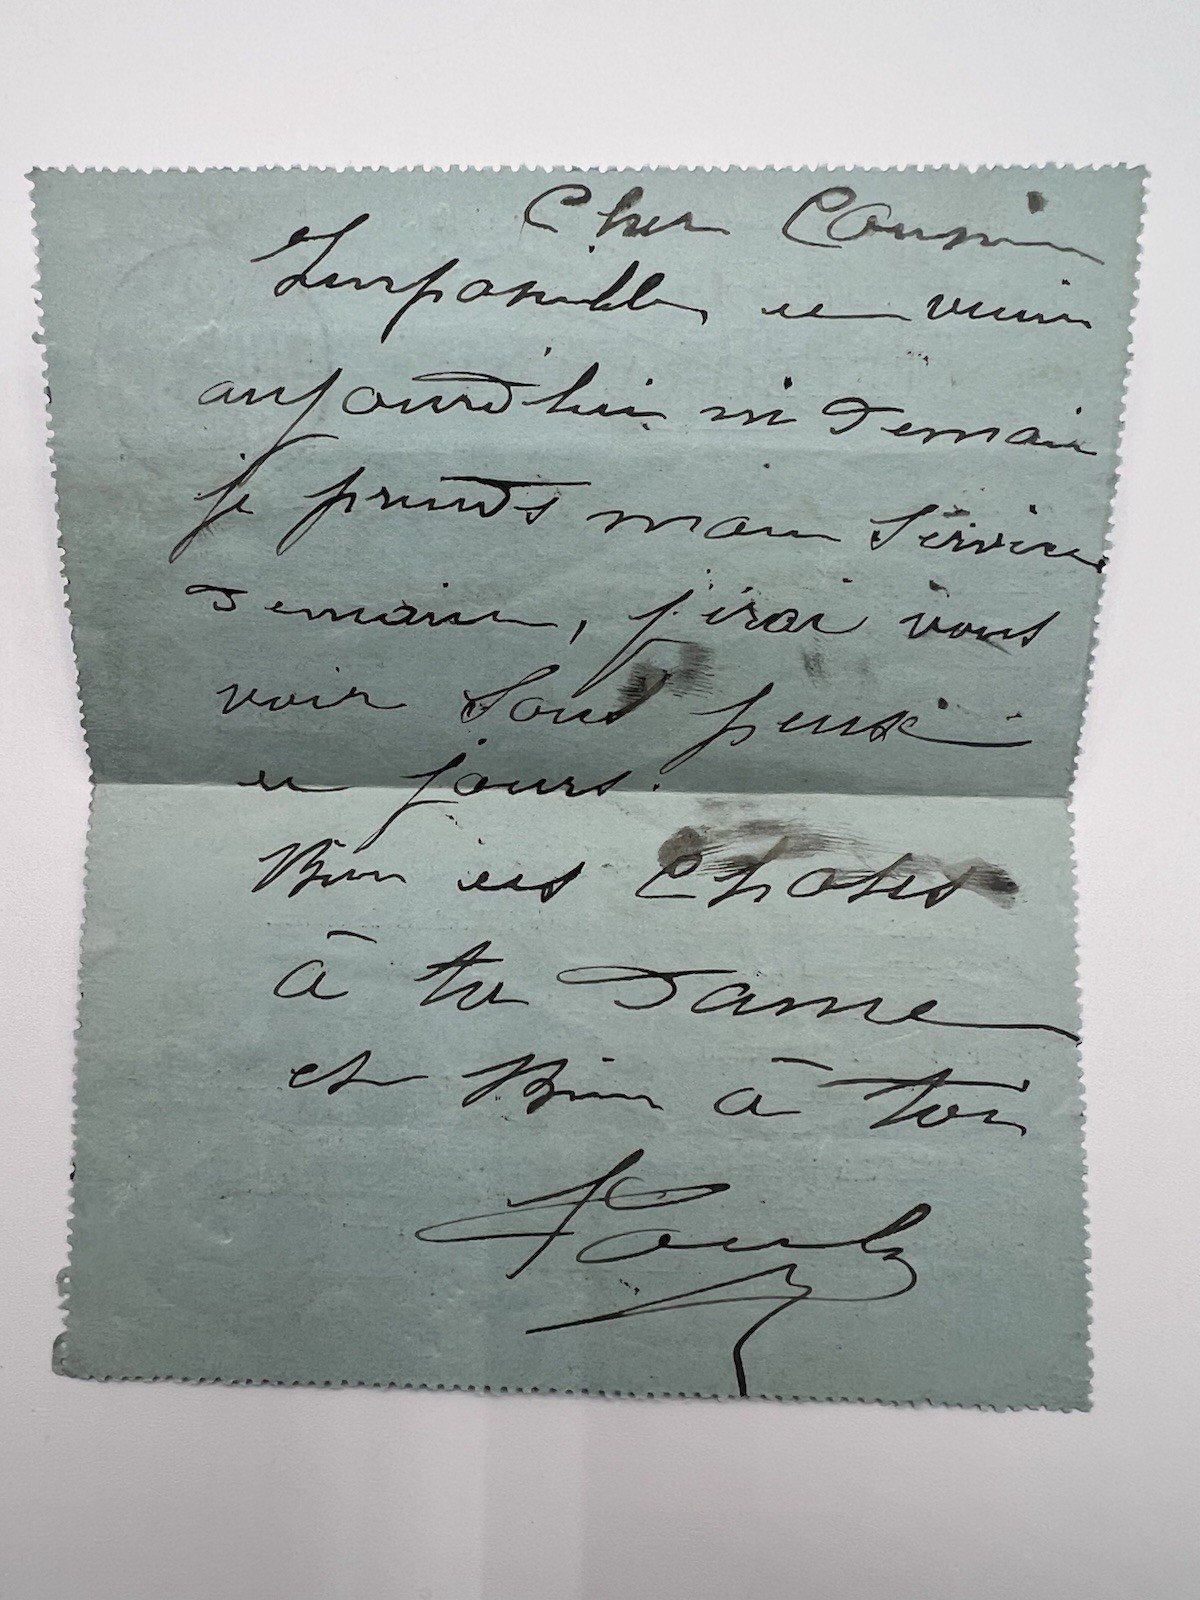 Cher Cousin
Impossible de venir
aujourd'hui ni demain
je prends mon service
demain, j'irai vous
voir sous peux
de jours.
Bien des choses
à ta Dame
et Bien à toi